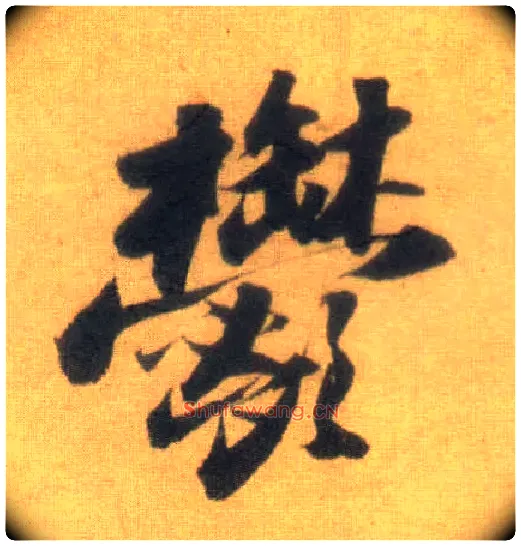 鬱
Shufawang.CN